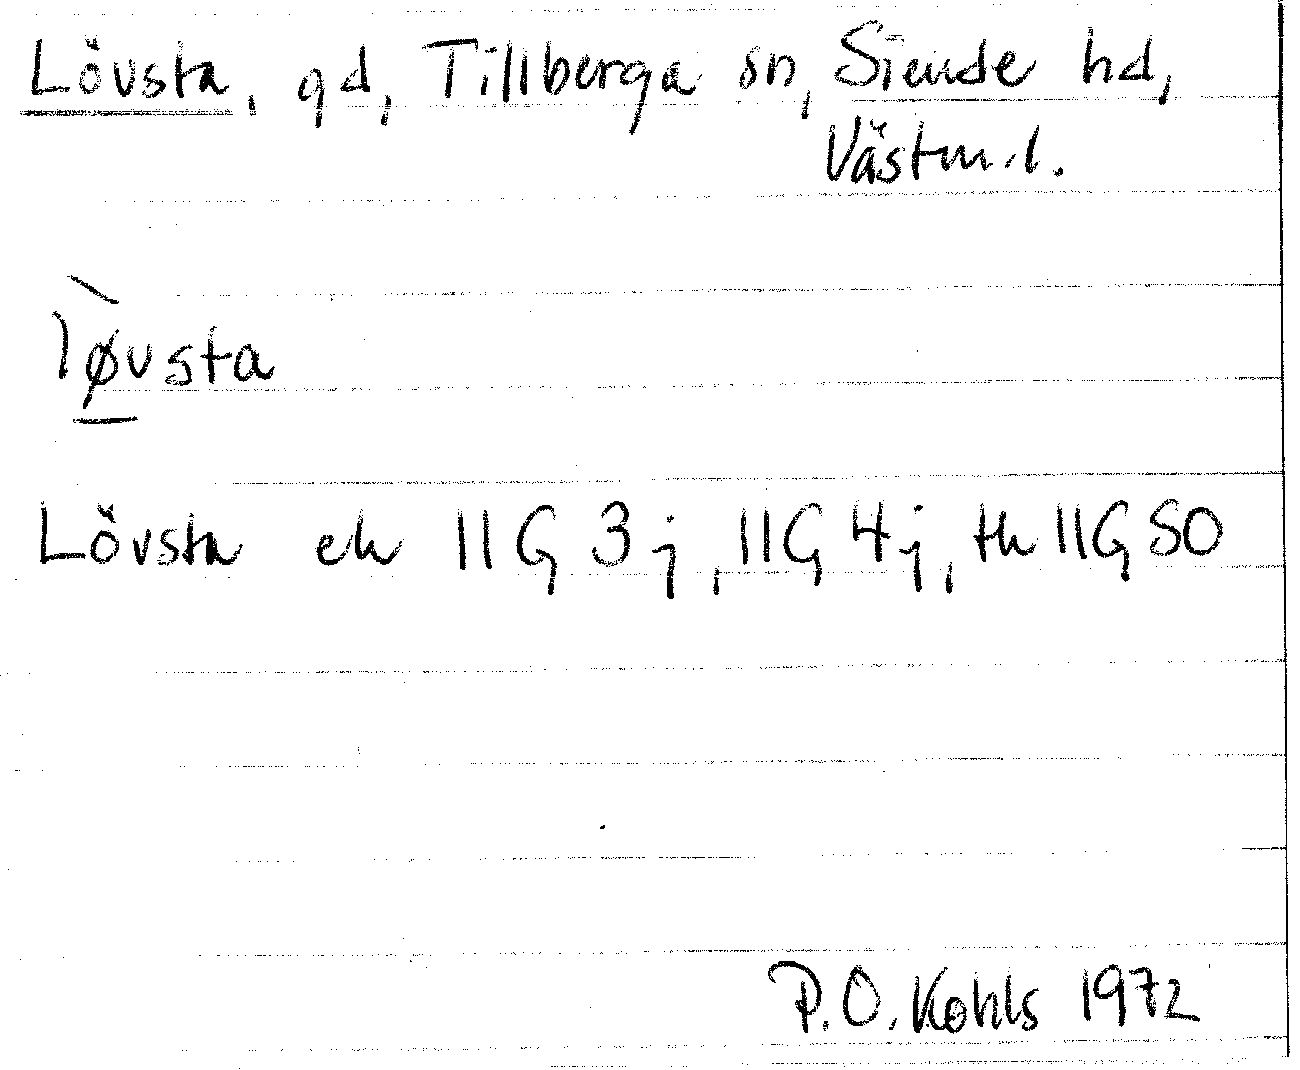 Lövsta, gd, Tillberga sn, Siende hd,
Västm. l.
l̀ø̱vsta
Lövsta ek 11G 3j, 11G 4j, tk 11G SO
P.O. Kohls 1972